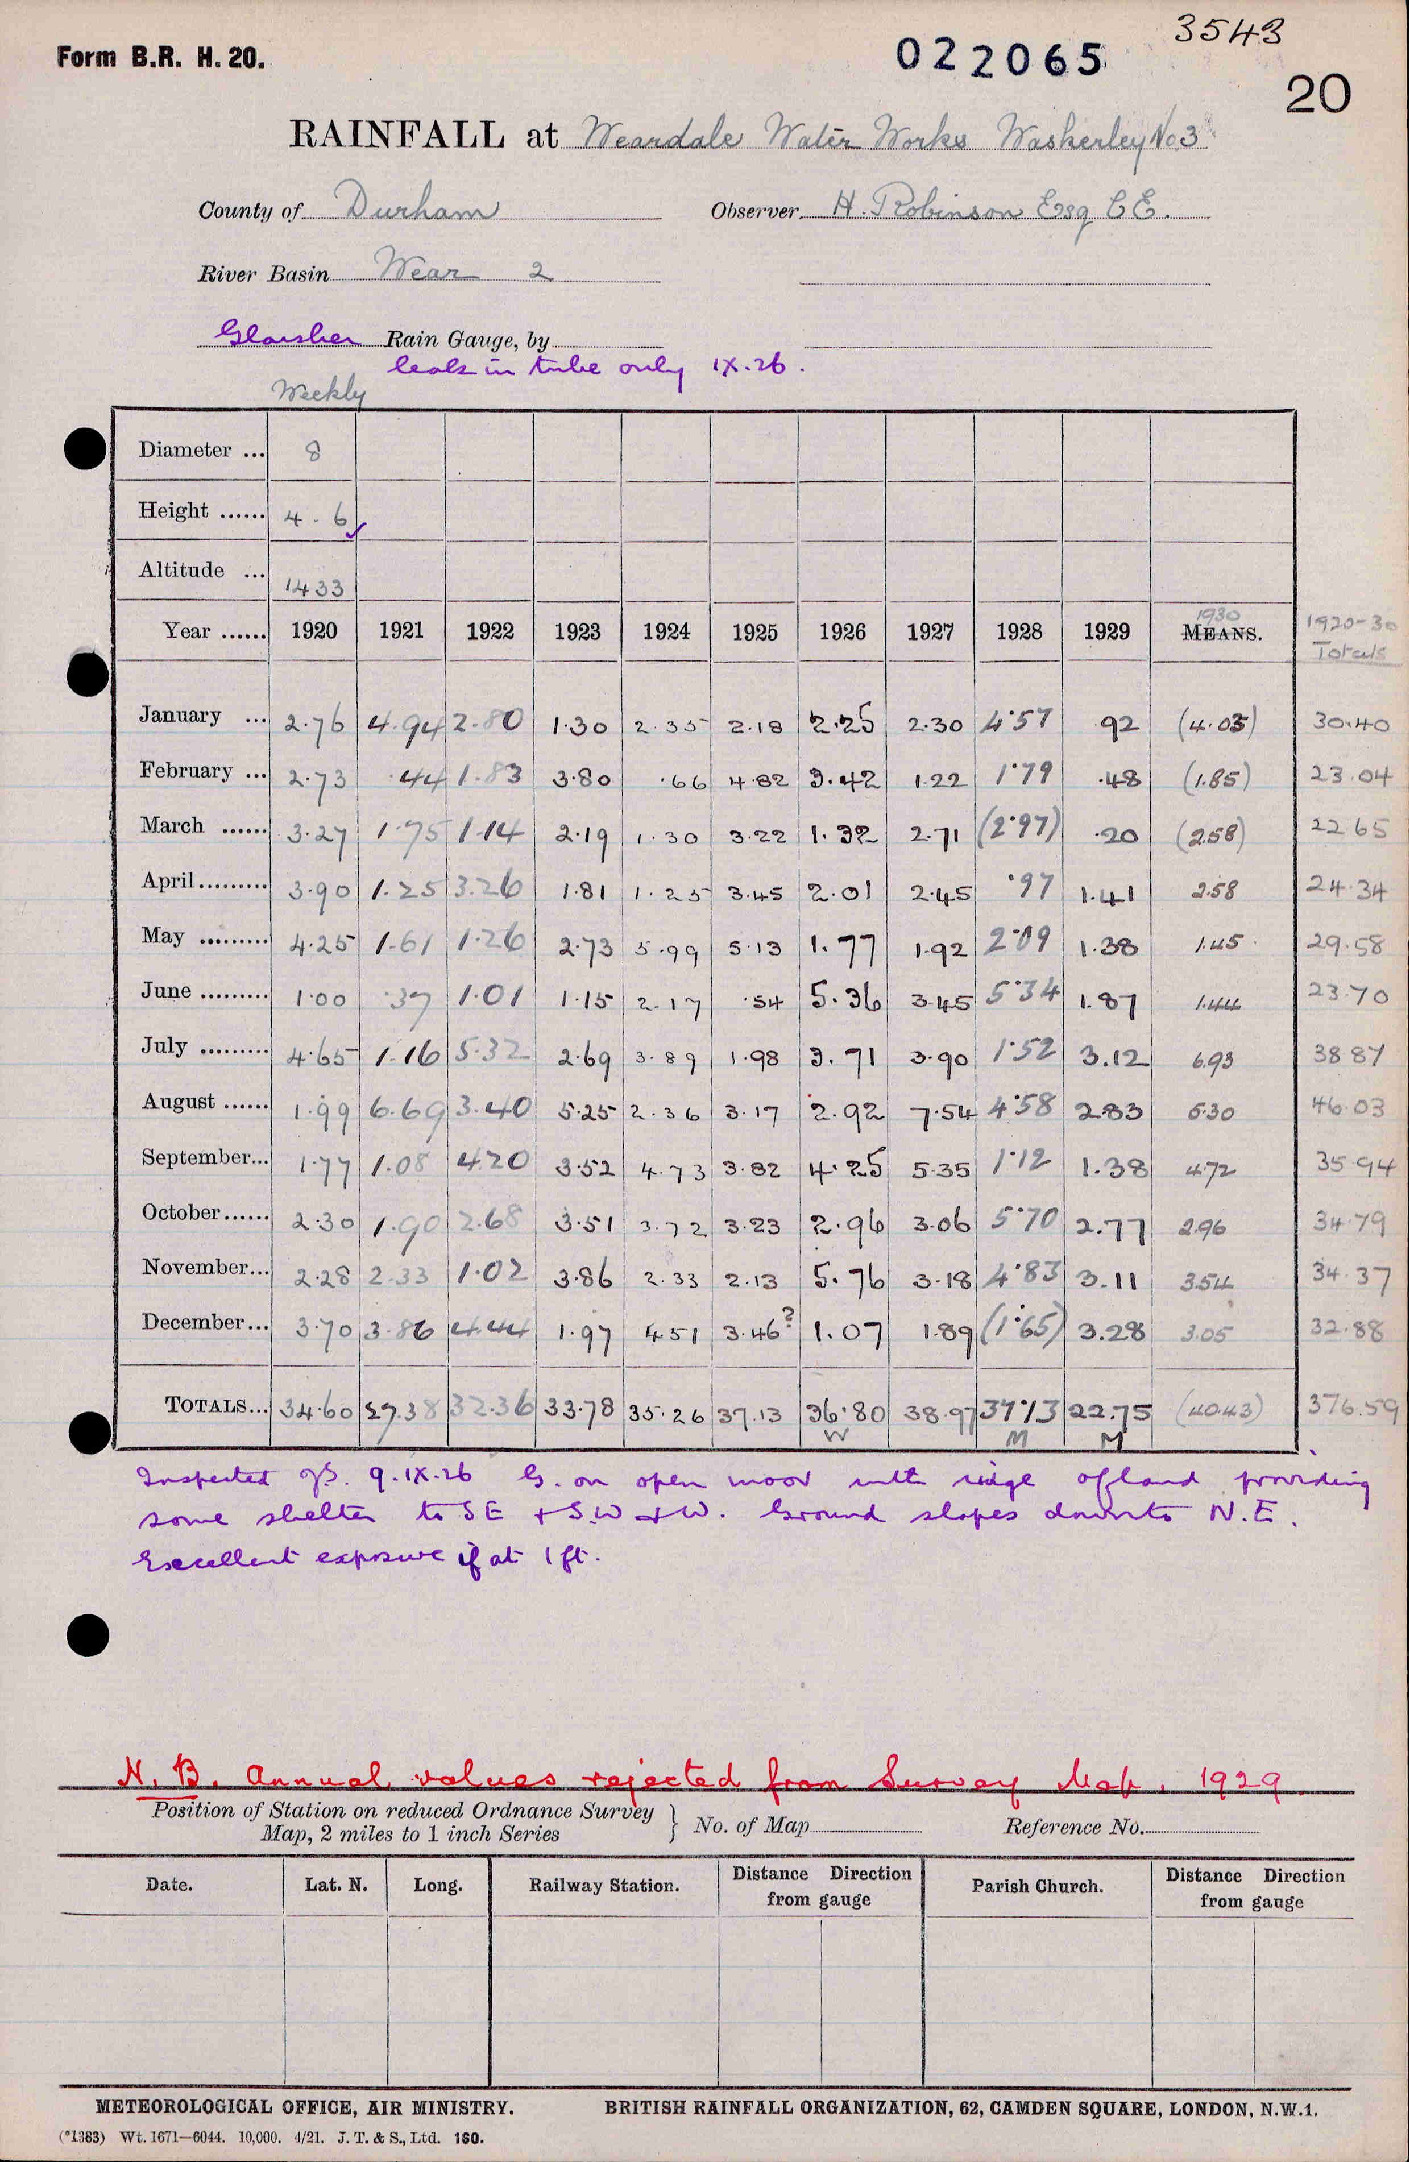 3543
Form B.R. H. 20.
022065
20
RAINFALL at Weardale Water Works Waskerley No. 3
County of Durham Observer H. Robinson Esq C E.
River Basin Wear 2
Glaisher Rain Gauge, by
leak in tube only IX.26.
Weekly
Diameter ... 8
Height ...... 4.6 ✓
Altitude ... 1433
1930
Year ...... 1920 1921 1922 1923 1924 1925 1926 1927 1928 1929 MEANS. 1920-30
Totals
January ... 2.76 4.94 2.80 1.30 2.35 2.18 2.25 2.30 4.57 .92 (4.03) 30.40
February ... 2.73 .44 1.83 3.80 .66 4.82 3.42 1.22 1.79 .48 (1.85) 23.04
March ...... 3.27 1.75 1.14 2.19 1.30 3.22 1.32 2.71 (2.97) .20 (2.58) 22 65
April ......... 3.90 1.25 3.26 1.81 1.25 3.45 2.01 2.45 .97 1.41 2.58 24.34
May ......... 4.25 1.61 1.26 2.73 5.99 5.13 1.77 1.92 2.09 1.38 1.45 29.58
June ......... 1.00 .37 1.01 1.15 2.17 .54 5.36 3.45 5.34 1.87 1.44 23.70
July ......... 4.65 1.16 5.32 2.69 3.89 1.98 3.71 3.90 1.52 3.12 6.93 38 87
August ...... 1.99 6.69 3.40 5.25 2.36 3.17 2.92 7.54 4.58 2.83 5.30 46.03
September... 1.77 1.08 4.20 3.52 4.73 3.82 4.25 5.35 1.12 1.38 4.72 35.94
October...... 2.30 1.90 2.68 3.51 3.72 3.23 2.96 3.06 5.70 2.77 2.96 34.79
November... 2.28 2.33 1.02 3.86 2.33 2.13 5.76 3.18 4.83 3.11 3.54 34.37
December... 3.70 3.86 4.44 1.97 4.51 3.46? 1.07 1.89 (1.65) 3.28 3.05 32.88
TOTALS... 34.60 27.38 32.36 33.78 35.26 37.13 36.80 38.97 37.13 22.75 (40.43) 376.59
W M M
Inspected 9.IX.26 G. on open moor with ridge of land providing
some shelter to SE + S.W + W. Ground slopes down to N.E.
Excellent exposure if at 1 ft.
N. B. Annual values rejected from Survey Map. 1929
Position of Station on reduced Ordnance Survey
Map, 2 miles to 1 inch Series } No. of Map Reference No.
Date. Lat. N. Long. Railway Station. Distance Direction from gauge Parish Church. Distance Direction from gauge
METEOROLOGICAL OFFICE, AIR MINISTRY. BRITISH RAINFALL ORGANIZATION, 62, CAMDEN SQUARE, LONDON, N.W.1.
(*1383) Wt. 1671—6044. 10,000. 4/21. J. T. & S., Ltd. 180.